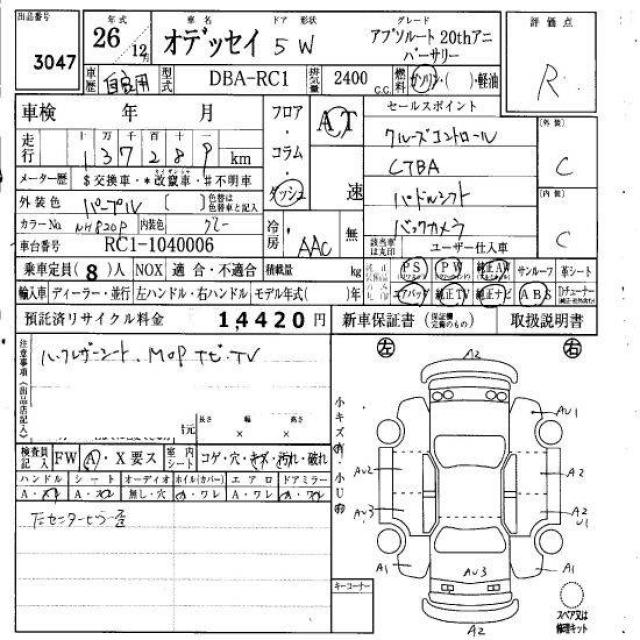 出品番号 年式 車名 ドア 形状 グレード 評価点
3047 26 12月 オデッセイ 5W アブソルート 20thアニバーサリー R
車歴 自家用 型式 DBA-RC1 排気量 2400 c.c. 燃料 ガソリン・( )・軽油
車検 年 月 フロア・コラム・ダッシュ AT 速 セールスポイント (外装) C
走行 十 万 千 百 十 一 137289 km クルーズコントロール
CTBA
メーター歴 $交換車・*改竄車・#不明車 パドルシフト (内装) C
外装色 パープル [ ] 色替は色替車と記入 バックカメラ
カラーNo. NH820P 内装色 グレー 冷房 AAC 無 該当車は丸印 ユーザー仕入車
車台番号 RC1-1040006
乗車定員(8)人 NOX 適合・不適合 積載量 kg PS PW 純正AW サンルーフ 革シート
輸入車 ディーラー・並行 左ハンドル・右ハンドル モデル年式( )年 エアバッグ 純正TV 純正ナビ ABS
預託済リサイクル料金 14420円 新車保証書 取扱説明書
注意事項(出品店記入) ハーフレザーシート、MOPナビ・TV
長さ 幅 高さ
× ×
検査員記入 FW A・X要ス 室内シート コゲ・穴・キズ・汚れ・破れ
ハンドル シート オーディオ ホイル(カバー) エアロ ドアミラー
無し・穴 A・ワレ
左 右
A2
AU1
AU2 A2
AU3 A2
U1
A1 AU3 A1
A2
キーコーナー
スペア又は修理キット